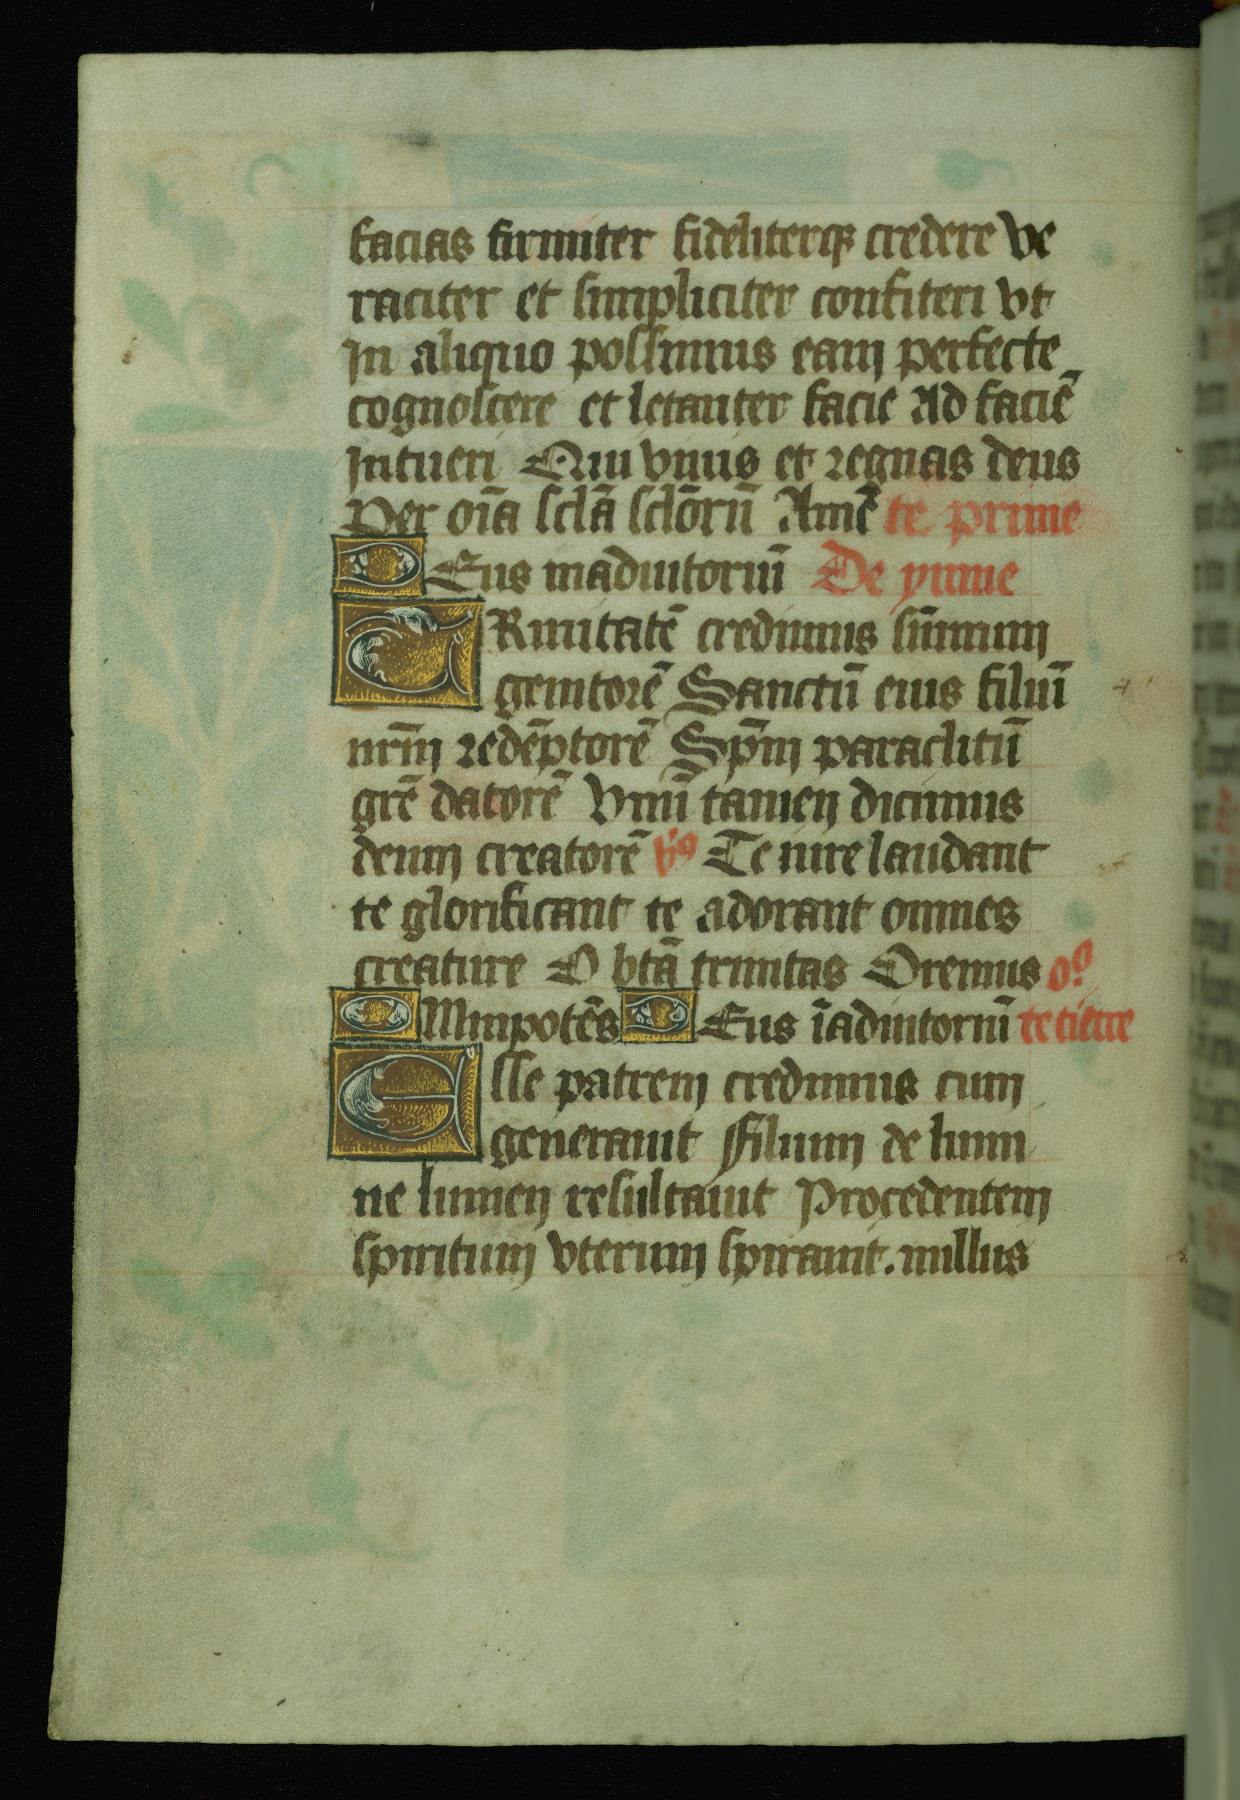 facias firmiter fideliterqꝫ credere ve
raciter et simpliciter confiteri vt
In aliquo possimus eam perfecte
cognoscere et letanter facie Ad faciē
Intueri Qui viuis et regnas deus
Per oīa sclā sclōrū Amē te prime
DEus inadiutoriū De ymne
TRinitatē credimus sūmum
genitorē Sanctū eius filiū
nrm̄ redēptorē Spm̄ paraclitū
grē datorē Vnū tamen dicimus
deum creatorē v̾s Te iure laudant
te glorificant te adorant omnes
creature O btā trinitas Oremus oo
OMnipotēs DEus īadiutoriū te tierce
Esse patrem credimus cum
generauit Filium de lumi
ne lumen resultauit Procedentem
spiritum vterum spirauit. nullus